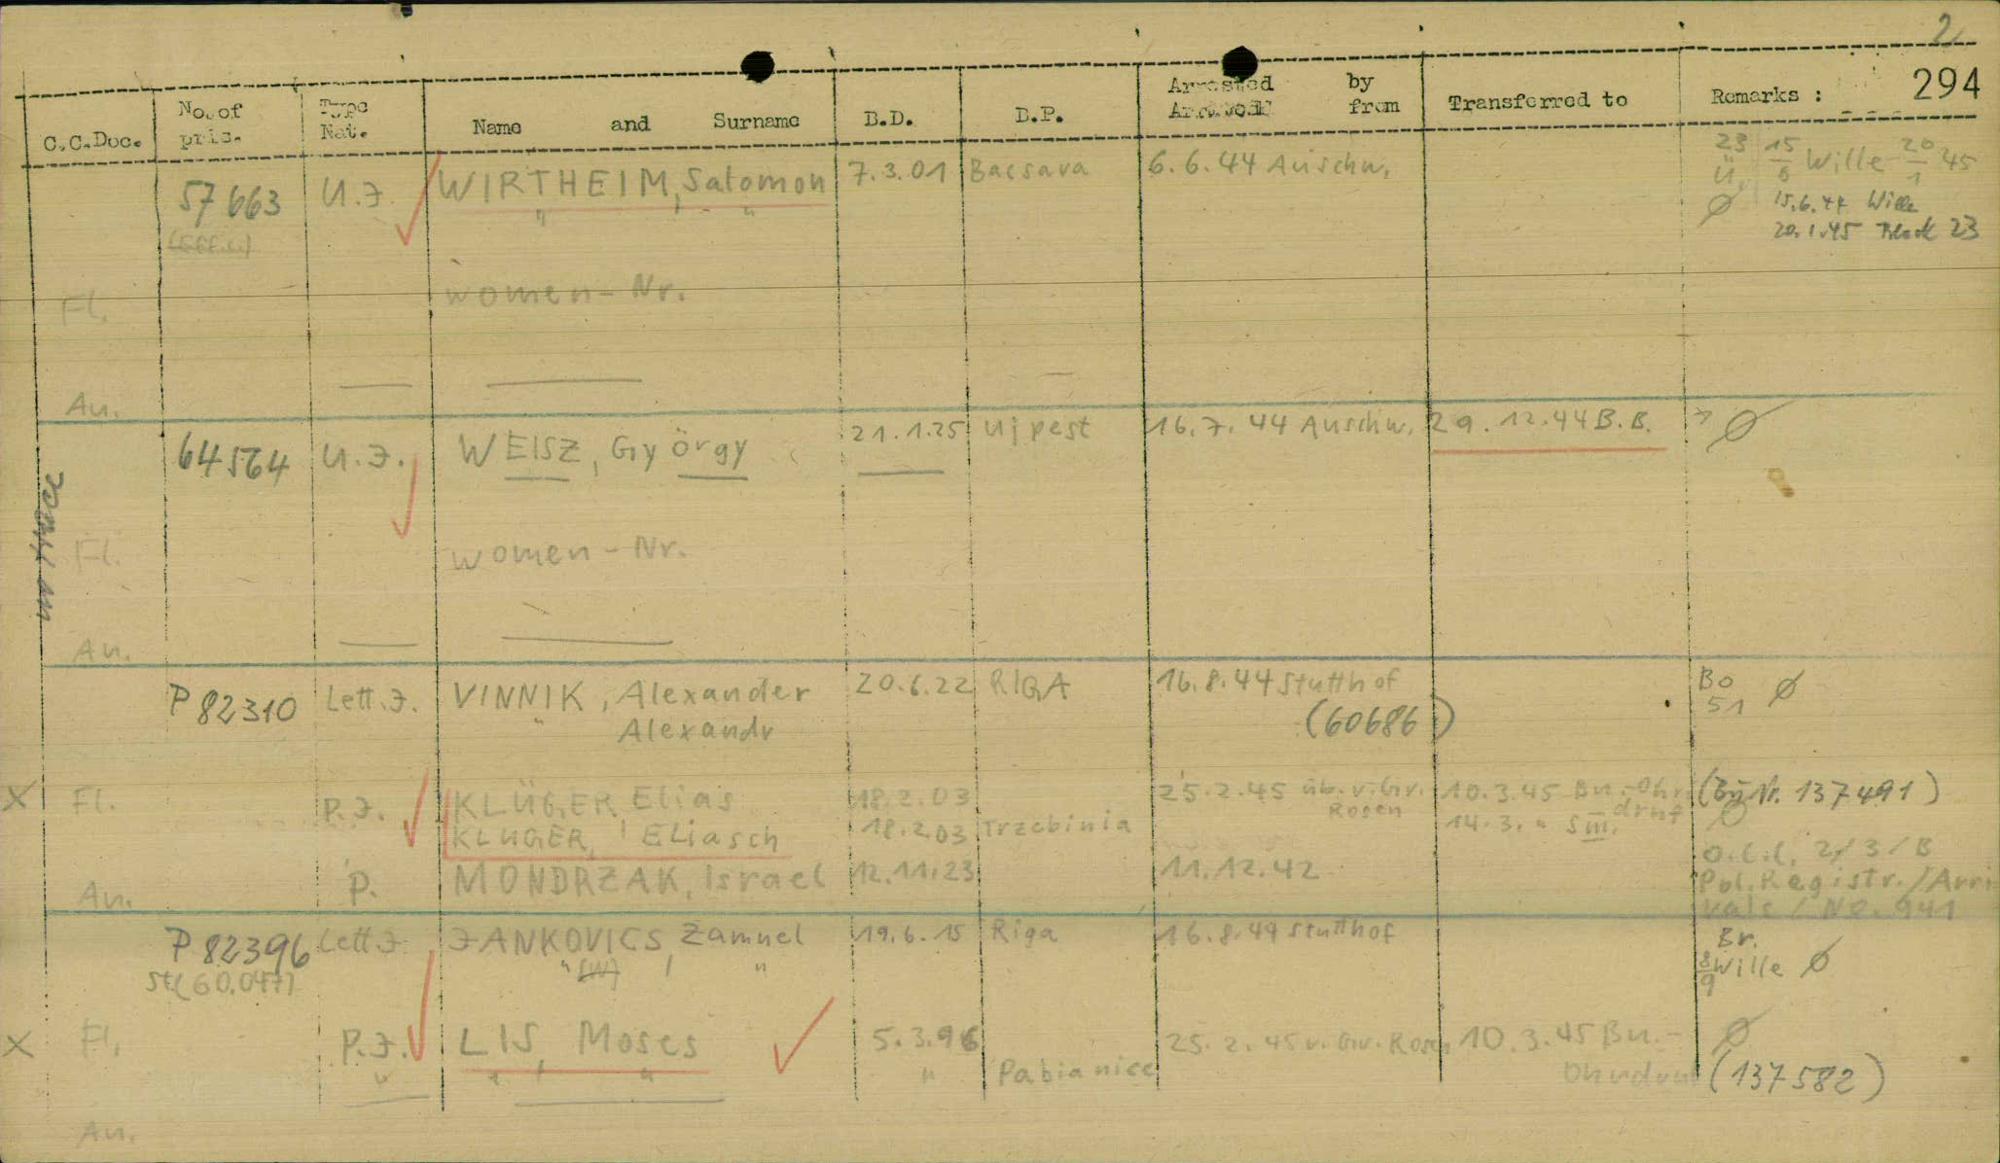 2
294
C.C.Doc. No. of pris. Type Nat. Name and Surname B.D. D.P. Arrested by from Transferred to Remarks :
57663 U.J. WIRTHEIM, Salomon 7.3.01 Bacsava 6.6.44 Auschw. 23 15/6 Wille 20/1 45
" " Ü. ∅ 15.6.44 Wille
20.1.45 Block 23
Fl. women-Nr.
An.
64564 U.J. WEISZ, György 21.1.25 Ujpest 16.7.44 Auschw. 29.12.44 B.B. ∅
Fl. women-Nr.
An.
P 82310 Lett.J. VINNIK, Alexander 20.6.22 RIGA 16.8.44 Stutthof Bo ∅
" Alexandr (60686) 51
X Fl. P.J. KLÜGER, Elias 18.2.03 25.2.45 üb. v. Gr. Rosen 10.3.45 Bu.-Ohrdruf (Bu Nr. 137491)
KLUGER, Eliasch 18.2.03 Trzebinia 14.3. " S III. ∅
O.C.C. 2/3/B
An. P. MONDRZAK, Israel 12.11.23 11.12.42 Pol. Registr./Arri
vals / No. 941
P 82396 Lett.J. JANKOVICS, Zamuel 19.6.15 Riga 16.8.44 Stutthof Br.
St(60.047) " (W) " 8/9 Wille ∅
X Fl. P.J. LIS, Moses 5.3.96 25.2.45 v. Gr. Rosen 10.3.45 Bu.- ∅
" " " " Pabianice Ohrdruf (137582)
An.